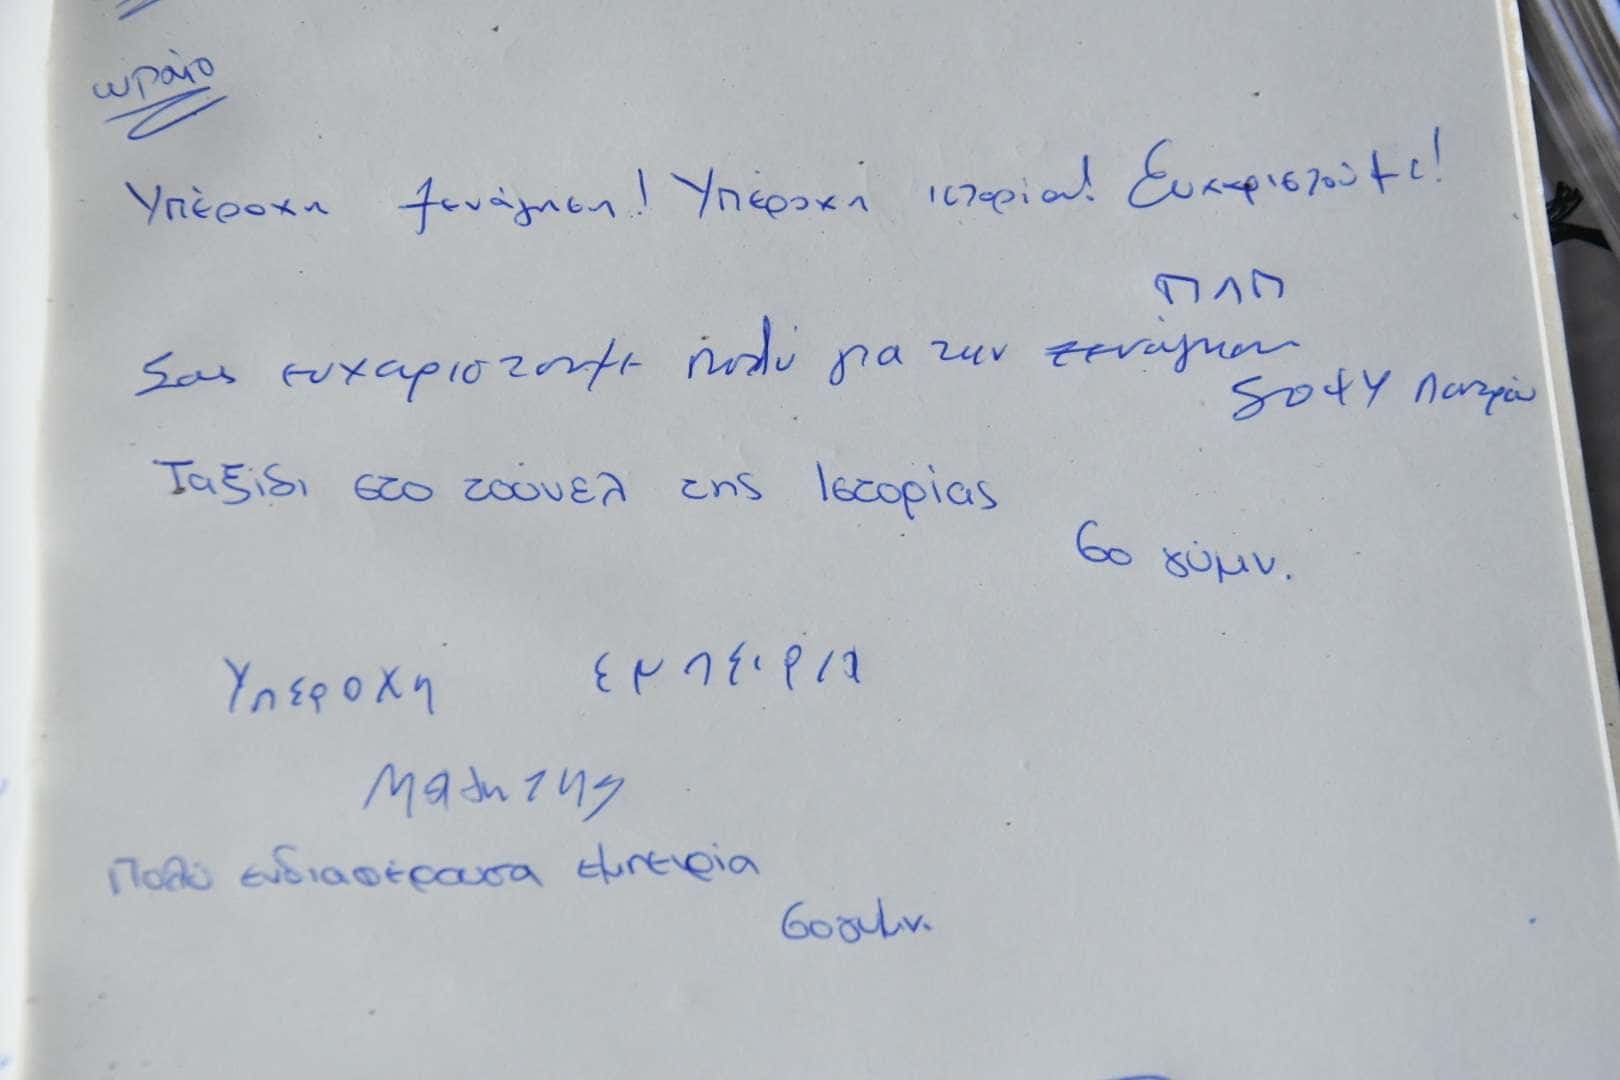 ωραίο
Υπέροχη ξενάγηση! Υπέροχη ιστορία! Ευχαριστούμε!
ΠΛΠ
Σας ευχαριστουμε πολύ για την ξενάγηση
Ταξίδι στο τούνελ της Ιστορίας
6ο γύμν.
Υπεροχη εμπειρια
Μαθητης
Πολύ ενδιαφέρουσα εμπειρία
6ο γυμν.